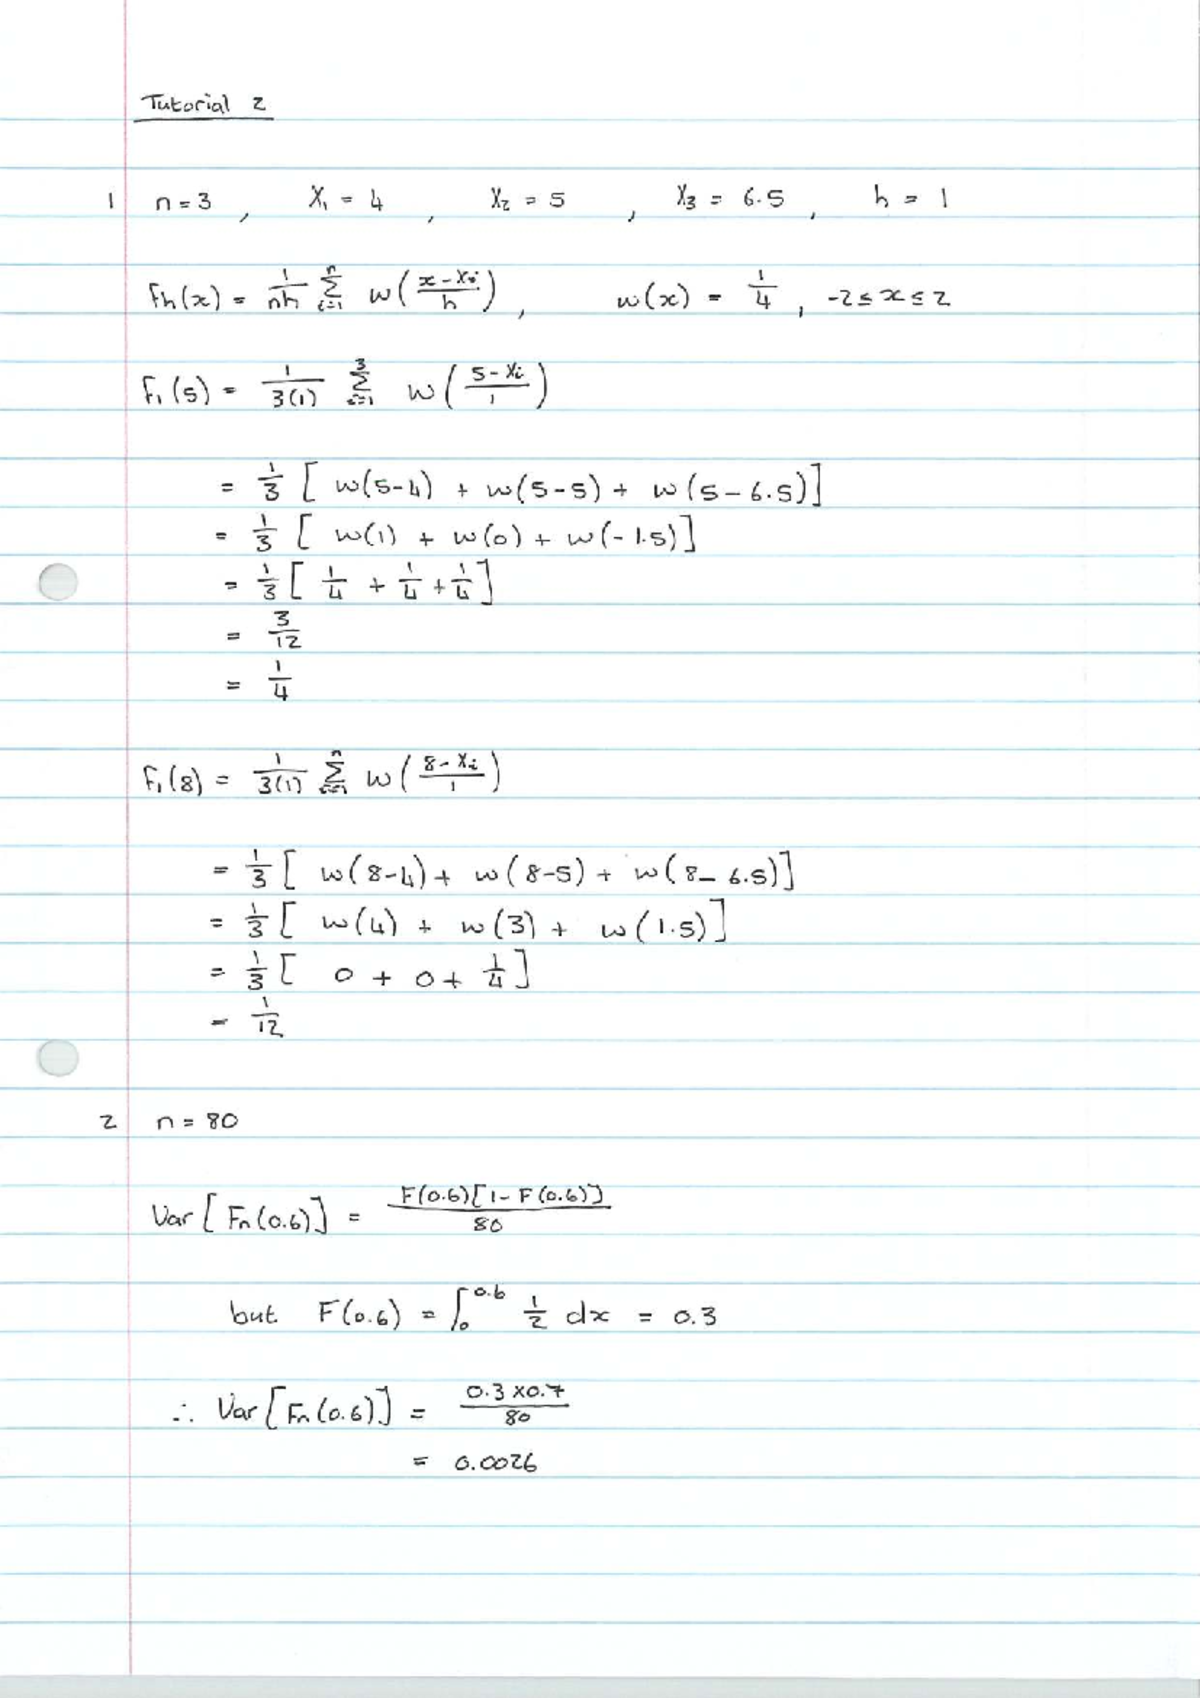 Tutorial 2
1 n = 3 , X₁ = 4 , X₂ = 5 , X₃ = 6.5 , h = 1
fh(x) = 1/nh Σⁿᵢ₌₁ w((x - Xi)/h) , w(x) = 1/4 , -2 ≤ x ≤ 2
f₁(5) = 1/3(1) Σ³ᵢ₌₁ w((5 - Xi)/1)
= 1/3 [ w(5-4) + w(5-5) + w(5-6.5)]
= 1/3 [ w(1) + w(0) + w(-1.5)]
= 1/3 [ 1/4 + 1/4 + 1/4 ]
= 3/12
= 1/4
f₁(8) = 1/3(1) Σⁿᵢ₌₁ w((8 - Xi)/1)
= 1/3 [ w(8-4) + w(8-5) + w(8-6.5)]
= 1/3 [ w(4) + w(3) + w(1.5)]
= 1/3 [ 0 + 0 + 1/4 ]
= 1/12
2 n = 80
Var[Fn(0.6)] = F(0.6)[1 - F(0.6)]/80
but F(0.6) = ∫₀^0.6 1/2 dx = 0.3
∴ Var[Fn(0.6)] = 0.3 x 0.7/80
= 0.0026